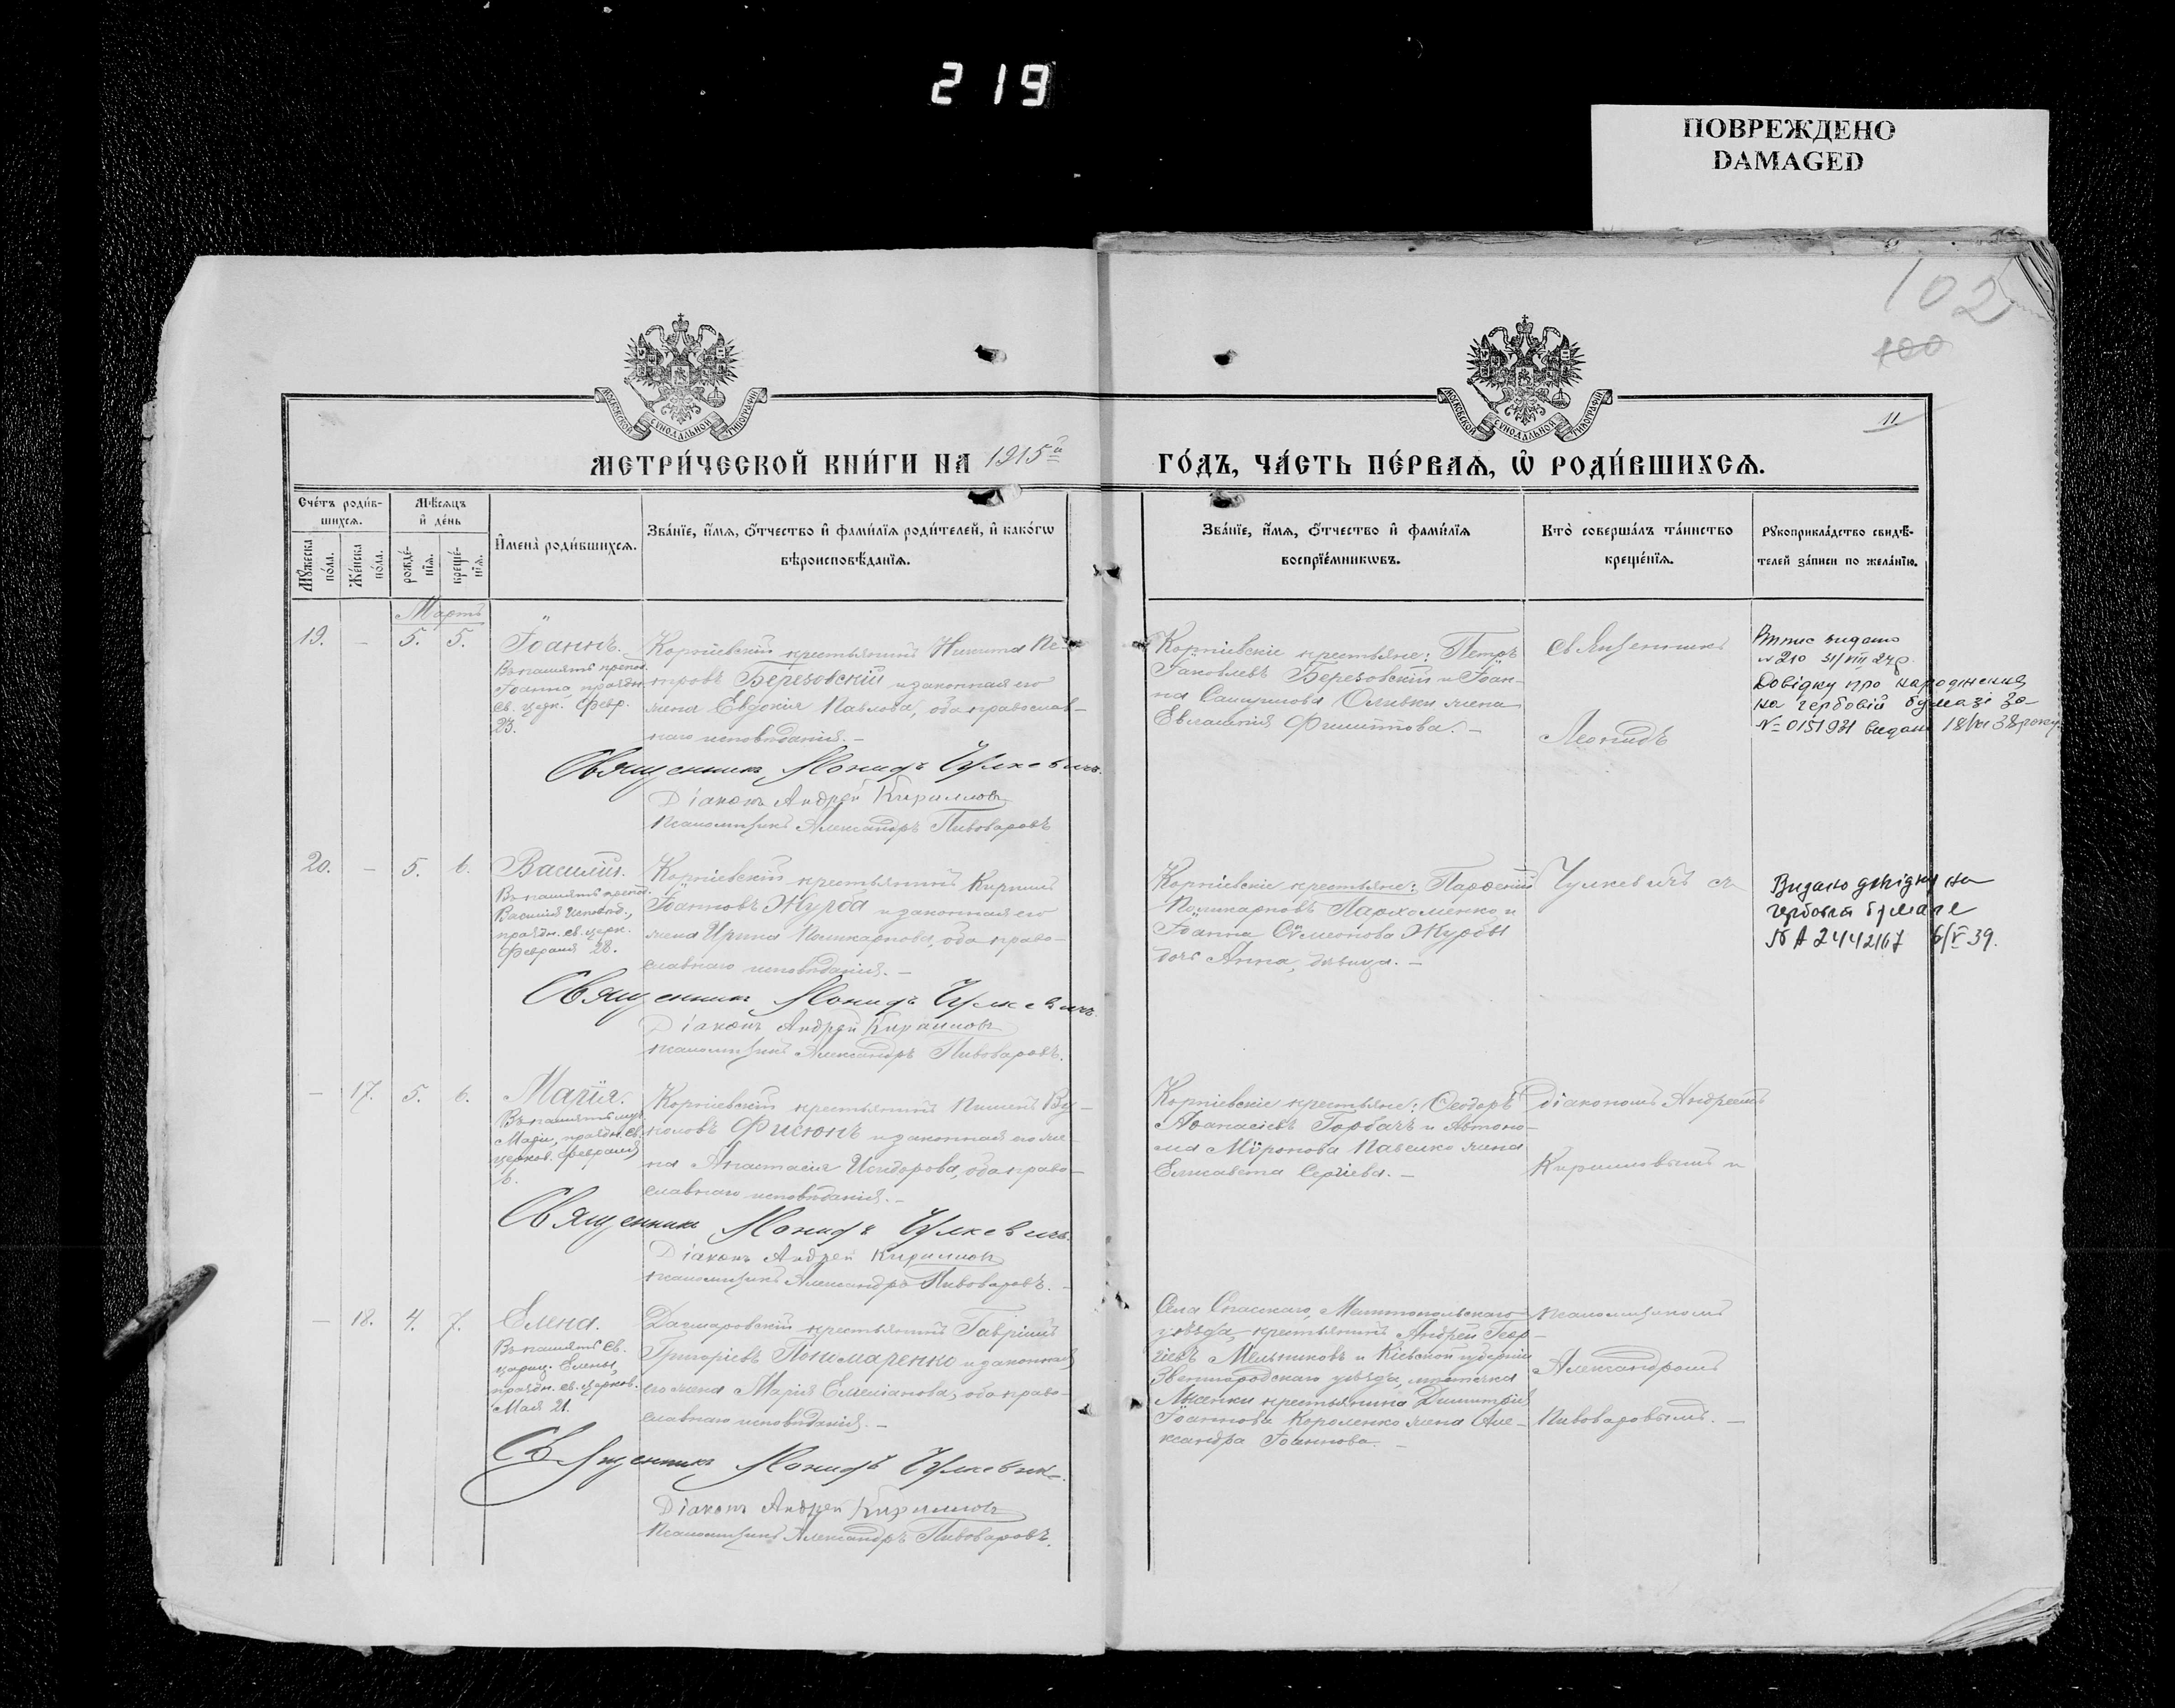 219
ПОВРЕЖДЕНО
DAMAGED
102
100
11
МОСКОВСКОЙ СѴНОДАЛЬНОЙ ТИПОГРАФІИ
МОСКОВСКОЙ СѴНОДАЛЬНОЙ ТИПОГРАФІИ
МЕТРИ́ЧЕСКОЙ КНИ́ГИ НА 1915й
ГО́ДЪ, ЧА́СТЬ ПЕ́РВАѦ, Ѽ РОДИ́ВШИХСѦ.
Сче́тъ роди́в-
шихсѧ.
Мѣ́сѧцъ
и҆ де́нь
Мꙋ́жеска по́ла.
Же́нска по́ла.
рожде́-нїѧ.
креще́-нїѧ.
И҆мена̀ роди́вшихсѧ.
Зва́нїе, и҆́мѧ, ѻ҆́тчество и҆ фами́лїѧ роди́телей, и҆ како́гѡ
вѣроисповѣ́данїѧ.
Зва́нїе, и҆́мѧ, ѻ҆́тчество и҆ фами́лїѧ
воспрїе́мникѡвъ.
Кто̀ соверша́лъ та́инство
креще́нїѧ.
Рꙋкоприкла́дство свидѣ́-
телей за́писи по жела́нїю.
Мартъ
19. - 5. 5.
Іоаннъ.
Въ память препод.
Іоанна, праздн.
св. церк. Февр.
23.
Корніевскій крестьянинъ Никита Пе-
тровъ Березовскій и законная его
жена Евдокія Павлова, оба православ-
наго исповѣданія. -
Священникъ Леонидъ Чулкевичъ.
Діаконъ Андрей Кирилловъ
Псаломщикъ Александръ Пивоваровъ
Корніевскіе крестьяне: Петръ
Іаковлевъ Березовскій и Іоан-
на жена
Евлампія Филиппова. -
Священникъ
Леонидъ
Випис видано
№ 210 31/VIII 24р.
Довідку про народження
на гербовій бумазі за
№ 0151931 видано 18/ 38 року
20. - 5. 6.
Василій.
Въ память препод.
Василія Исповѣд.,
праздн. св. церк.
Февраля 28.
Корніевскій крестьянинъ Кириллъ
Іоанновъ Журба и законная его
жена Ирина Поликарпова, оба право-
славнаго исповѣданія. -
Священникъ Леонидъ Чулкевичъ.
Діаконъ Андрей Кирилловъ
Псаломщикъ Александръ Пивоваровъ.
Корніевскіе крестьяне: Парѳеній
Поликарповъ Пархоменко и
Іоанна Сѵмеонова Журбы
дочь Анна, дѣвица. -
Чулкевичъ съ
Видано довідку на
гербовій бумазе
№ А 2442167 6/V 39.
- 17. 5. 6.
Марія.
Въ память муч.
Маріи, праздн. св.
церков. Февраля
6.
Корніевскій крестьянинъ Пименъ Ву-
коловъ и законная его же-
на Анастасія Исидорова, оба право-
славнаго исповѣданія. -
Священникъ Леонидъ Чулкевичъ.
Діаконъ Андрей Кирилловъ
Псаломщикъ Александръ Пивоваровъ. -
Корніевскіе крестьяне: Ѳеодоръ
Аѳанасіевъ Горбачъ и Автоно-
ма Мѵронова Павелко жена
Елисавета Сергіева. -
Діакономъ Андреемъ
Кирилловымъ и
- 18. 4. 7.
Елена.
Въ память св.
цариц. Елены,
праздн. св. церков.
Мая 21.
крестьянинъ Гавріилъ
Григоріевъ Пономаренко и законная
его жена Марія Емеліанова, оба право-
славнаго исповѣданія. -
Священникъ Леонидъ Чулкевичъ.
Діаконъ Андрей Кирилловъ
Псаломщикъ Александръ Пивоваровъ.
Села Спасскаго, Мелитопольскаго
уѣзда, крестьянинъ Андрей Геор-
гіевъ Мельниковъ и Кіевской губерніи
Звенигородскаго уѣзда, мѣстечка
Лысянки крестьянина Димитрія
Іоаннова Короленко жена Але-
ксандра Іоаннова. -
Псаломщикомъ
Александромъ
Пивоваровымъ. -